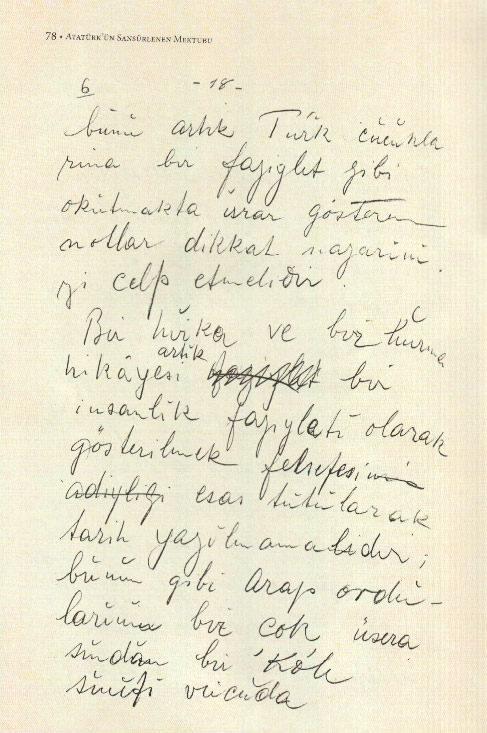 78 • ATATÜRK'ÜN SANSÜRLENEN MEKTUBU
6 - 18 -
bunu artık Türk çocukla
rına bir fazilet gibi
okutmakta ısrar gösteren
notlar dikkat nazarını
zi celp etmelidir.
Bir hırka ve bir hurma
hikâyesi artık bir
insanlık faziyleti olarak
gösterilmek felsefesi
esas tutularak
tarih yazılmamalıdır;
bunun gibi Arap ordu-
larının bir çok üsera
sından bir
vücuda